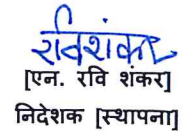 रविशंकर
[एन. रवि शंकर]
निदेशक [स्थापना]